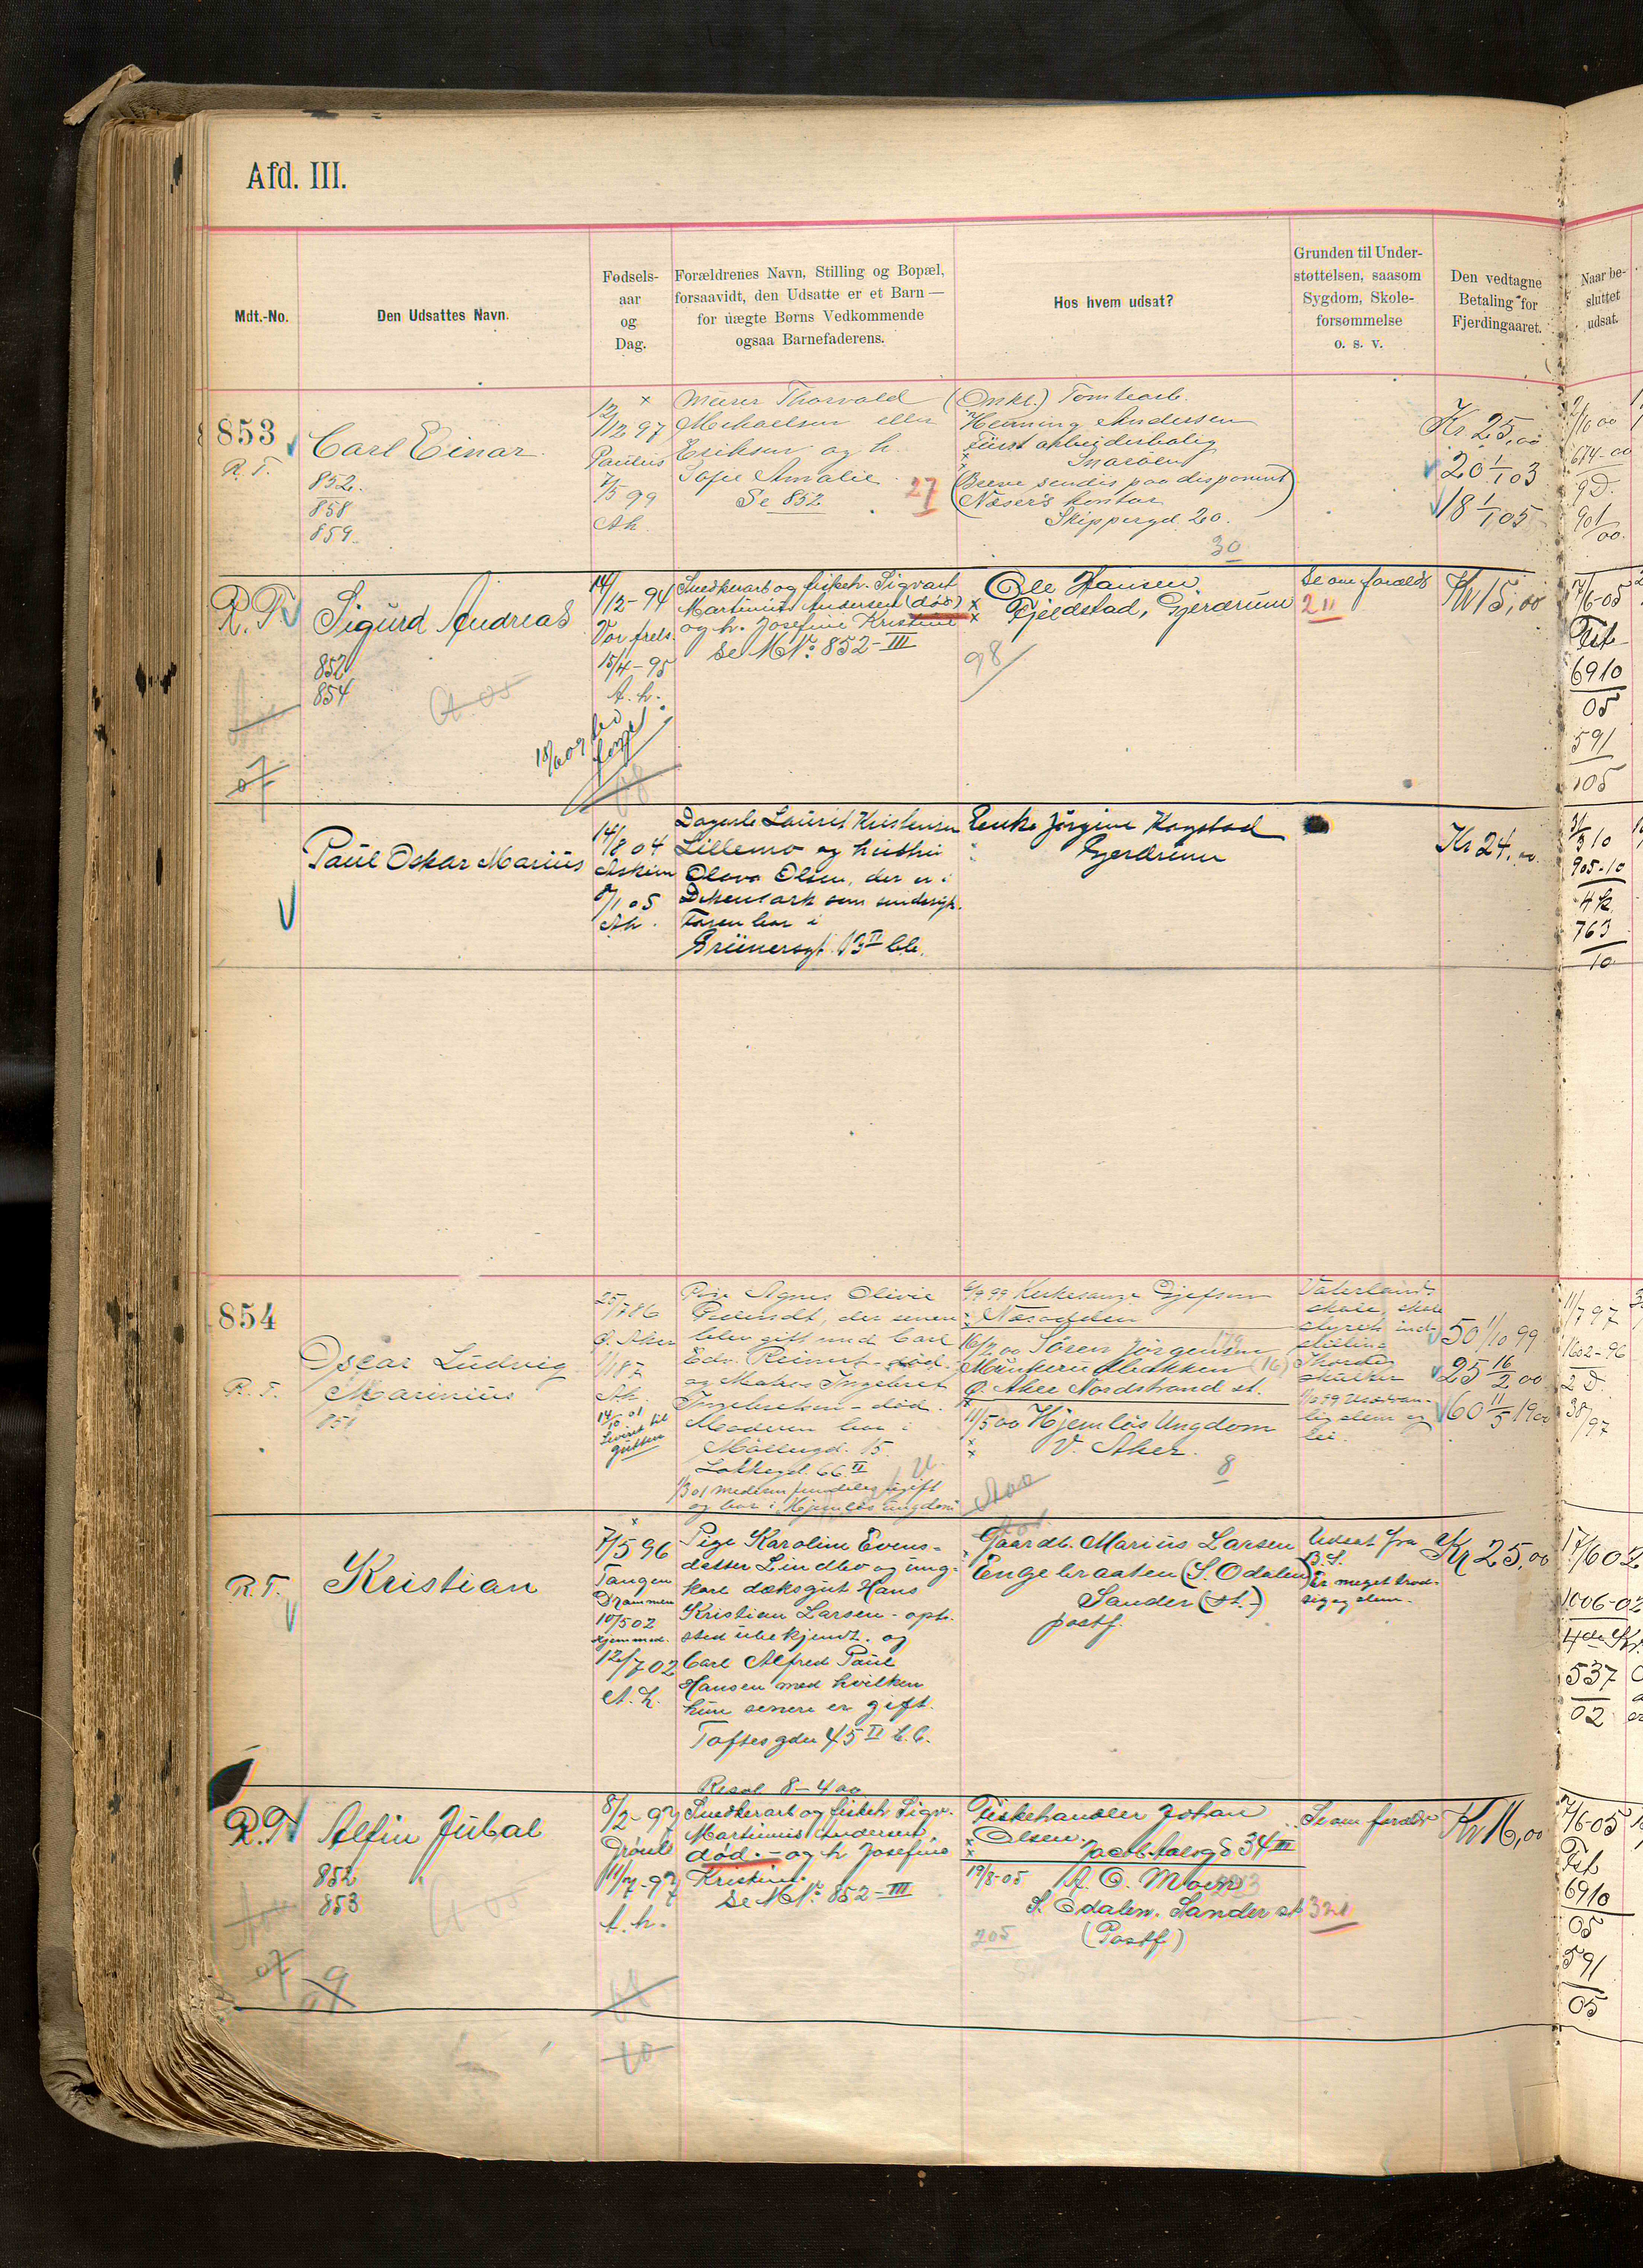 Afd. III.
Mdt.-No.
Den Udsattes Navn.
Fødsels-
aar
og
Dag.
Forældrenes Navn, Stilling og Bopæl,
forsaavidt, den Udsatte er et Barn —
for uægte Børns Vedkommende
ogsaa Barnefaderens.
Hos hvem udsat?
Grunden til Under-
støttelsen, saasom
Sygdom, Skole-
forsømmelse
o. s. v.
Den vedtagne
Betaling for
Fjerdingaaret.
Naar be-
sluttet
udsat.
853
R. T.
Carl Einar
852.
858
859.
12/12 97
Paulus
7/5 99
Ah.
Murer Thorvald
Michaelsen eller
Eriksen og h.
Sofie Amalie
Se 852
27
(Onkl.) Tomtearb.
Henning Andersen
arbeiderbolig
Snarøen
(Breve sendes paa disponent
Næser's kontor
Skippergd. 20.
30
Kr 25,00
20 1/1 03
18 1/1 05
2/10 00
674-00
9 D.
901
00.
R. T.
Sigurd Andreas
852
854
A. 05
07
14/12-94
Vor frels.
15/4-95
A. h.
08
Snedkerarb og fiskeh. Sigvart
Martinius Andersen (død)
og h. Josefine Kristine
Se M.N°. 852-III
Ole Hansen
Gjeldstad, Gjerdrum
98
Se om foræld
211
Kr 15,00
7/6-05
Fst
6910
05
591
105
Paul Oskar Marius
14/8 04
Askim
8/1 05
Ah.
Dagarb. Laurits Kristensen
Lillemo og hustru
Olava Olsen, der er i
Dikemark som sindssyk.
Faren bor i
Grünersgt. 13 II
Enke Jørgine Kogstad
Gjerdrum
Kr 24,00.
31/3 10
905-10
4 k
763
10
854
R. T.
Oscar Ludvig
Marinius
851
25/7 86
Ø. Aker
1/1 87
Ah.
14/10 01
Leveret til
gutten
Pige Agnes Olivie
der senere
blev gift med Carl
Edv. Reinert - død.
og Matros Ingebret
Ingebretsen - død.
Moderen bor i
Møllergd. 15
Løkkegd. 66 II
1/3 01 moderen fremdeles ugift
og bor i Hjemløs ungdom
6/9 99 Kirkesanger Gjefsen
Næsodden
16/2 00 Søren Jørgensen
179
Munkerudbakken (16)
Ø. Aker Nordstrand st.
11/5 00 Hjemløs Ungdom
V. Aker.
8
Vaterlands
skole, skole
styrets ind-
stilling
skulker
50 1/10 99
25 16/2 00
60 11/5 1900
11/7 97
1602-96
2 D.
38/97
R. T.
Kristian
7/5 96
Tangen
Drammen
10/5 02
Hjemmed.
12/7 02
A. h.
Pige Karoline Evens-
datter Lindbo og ung-
karl dæksgut Hans
Kristian Larsen - oph.
sted ubekjendt. og
Carl Alfred Paul
Hansen med hvilken
hun senere er gift.
Toftes gden 45 II
Gaardb. Marius Larsen
Engebraaten (S. Odalen)
Sander (st.)
postf.
Udsat fra
B. S.
Er meget trod-
sig og slem.
Kr 25,00
17/6 02
1006-02
4de
537
02
R. T.
Alfin Jubal
852
853
A 05
07
9
8/2-97
Grønl.
11/7-97
A. h.
10
Resol 8-4 00
Snedkerarb og fiskeh Sigv.
Martinius Andersen,
død. - og h Josefine
Kristine.
Se M.N°. 852-III
Fiskehandler Johan
Olsen.
Jacob Aalsgd 34 III
19/8-05 A. O. Moen
S. Odalen. Sander st 321
205
(Postf)
Se om foræld
Kr 16,00
7/6-05
Fst
6910
05
591
05